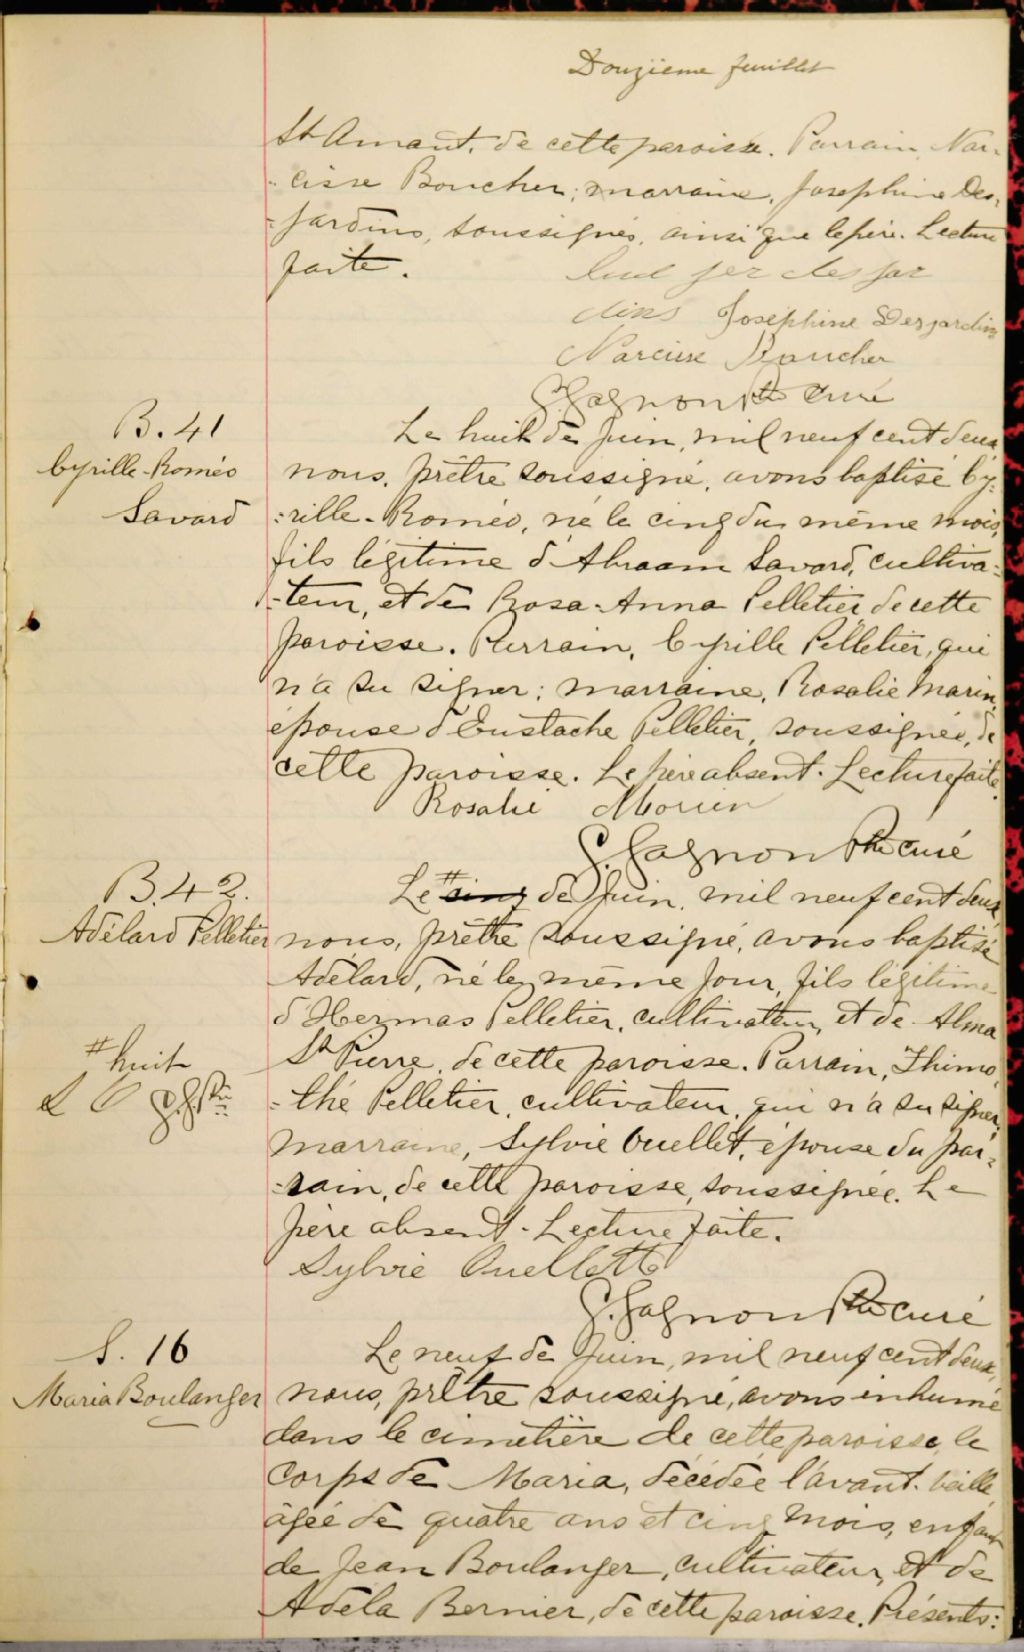 Douzième feuillet
St Amant, de cette paroisse. Parrain, Nar-
-cisse Boucher; marraine, Joséphine Des-
-jardins, soussignés, ainsi que le père. Lecture
faite.
des jar
dins Joséphine Desjardins
Narcisse Boucher
G. Gagnon Ptre curé
B. 41
Cyrille-Roméo
Savard
Le huit de Juin, mil neuf cent deux,
nous, prêtre soussigné, avons baptisé Cy-
-rille-Roméo, né le cinq du même mois,
fils légitime d'Abraam Savard, cultiva-
-teur, et de Rosa-Anna Pelletier de cette
paroisse. Parrain, Cyrille Pelletier, qui
n'a su signer; marraine, Rosalie Marin,
épouse d'Eustache Pelletier, soussignée, de
cette paroisse. Le père absent. Lecture faite.
Rosalie Morin
G. Gagnon Ptre curé
B. 42.
Adélard Pelletier
Le # cinq de Juin, mil neuf cent deux,
nous, prêtre soussigné, avons baptisé
Adélard, né le même jour, fils légitime
d'Hermas Pelletier, cultivateur, et de Alma
St Pierre, de cette paroisse. Parrain, Thimo-
-thé Pelletier, cultivateur, qui n'a su signer,
marraine, Sylvie Ouellet, épouse du par-
-rain, de cette paroisse, soussignée. Le
père absent. Lecture faite.
# huit
S O G.G. Ptre
Sylvie Ouellette
G. Gagnon Ptre curé
S. 16
Maria Boulanger
Le neuf de Juin, mil neuf cent deux,
nous, prêtre soussigné, avons inhumé
dans le cimetière de cette paroisse, le
corps de Maria, décédée l'avant-veille,
âgée de quatre ans et cinq mois, enfant
de Jean Boulanger, cultivateur, et de
Adéla Bernier, de cette paroisse. Présents: